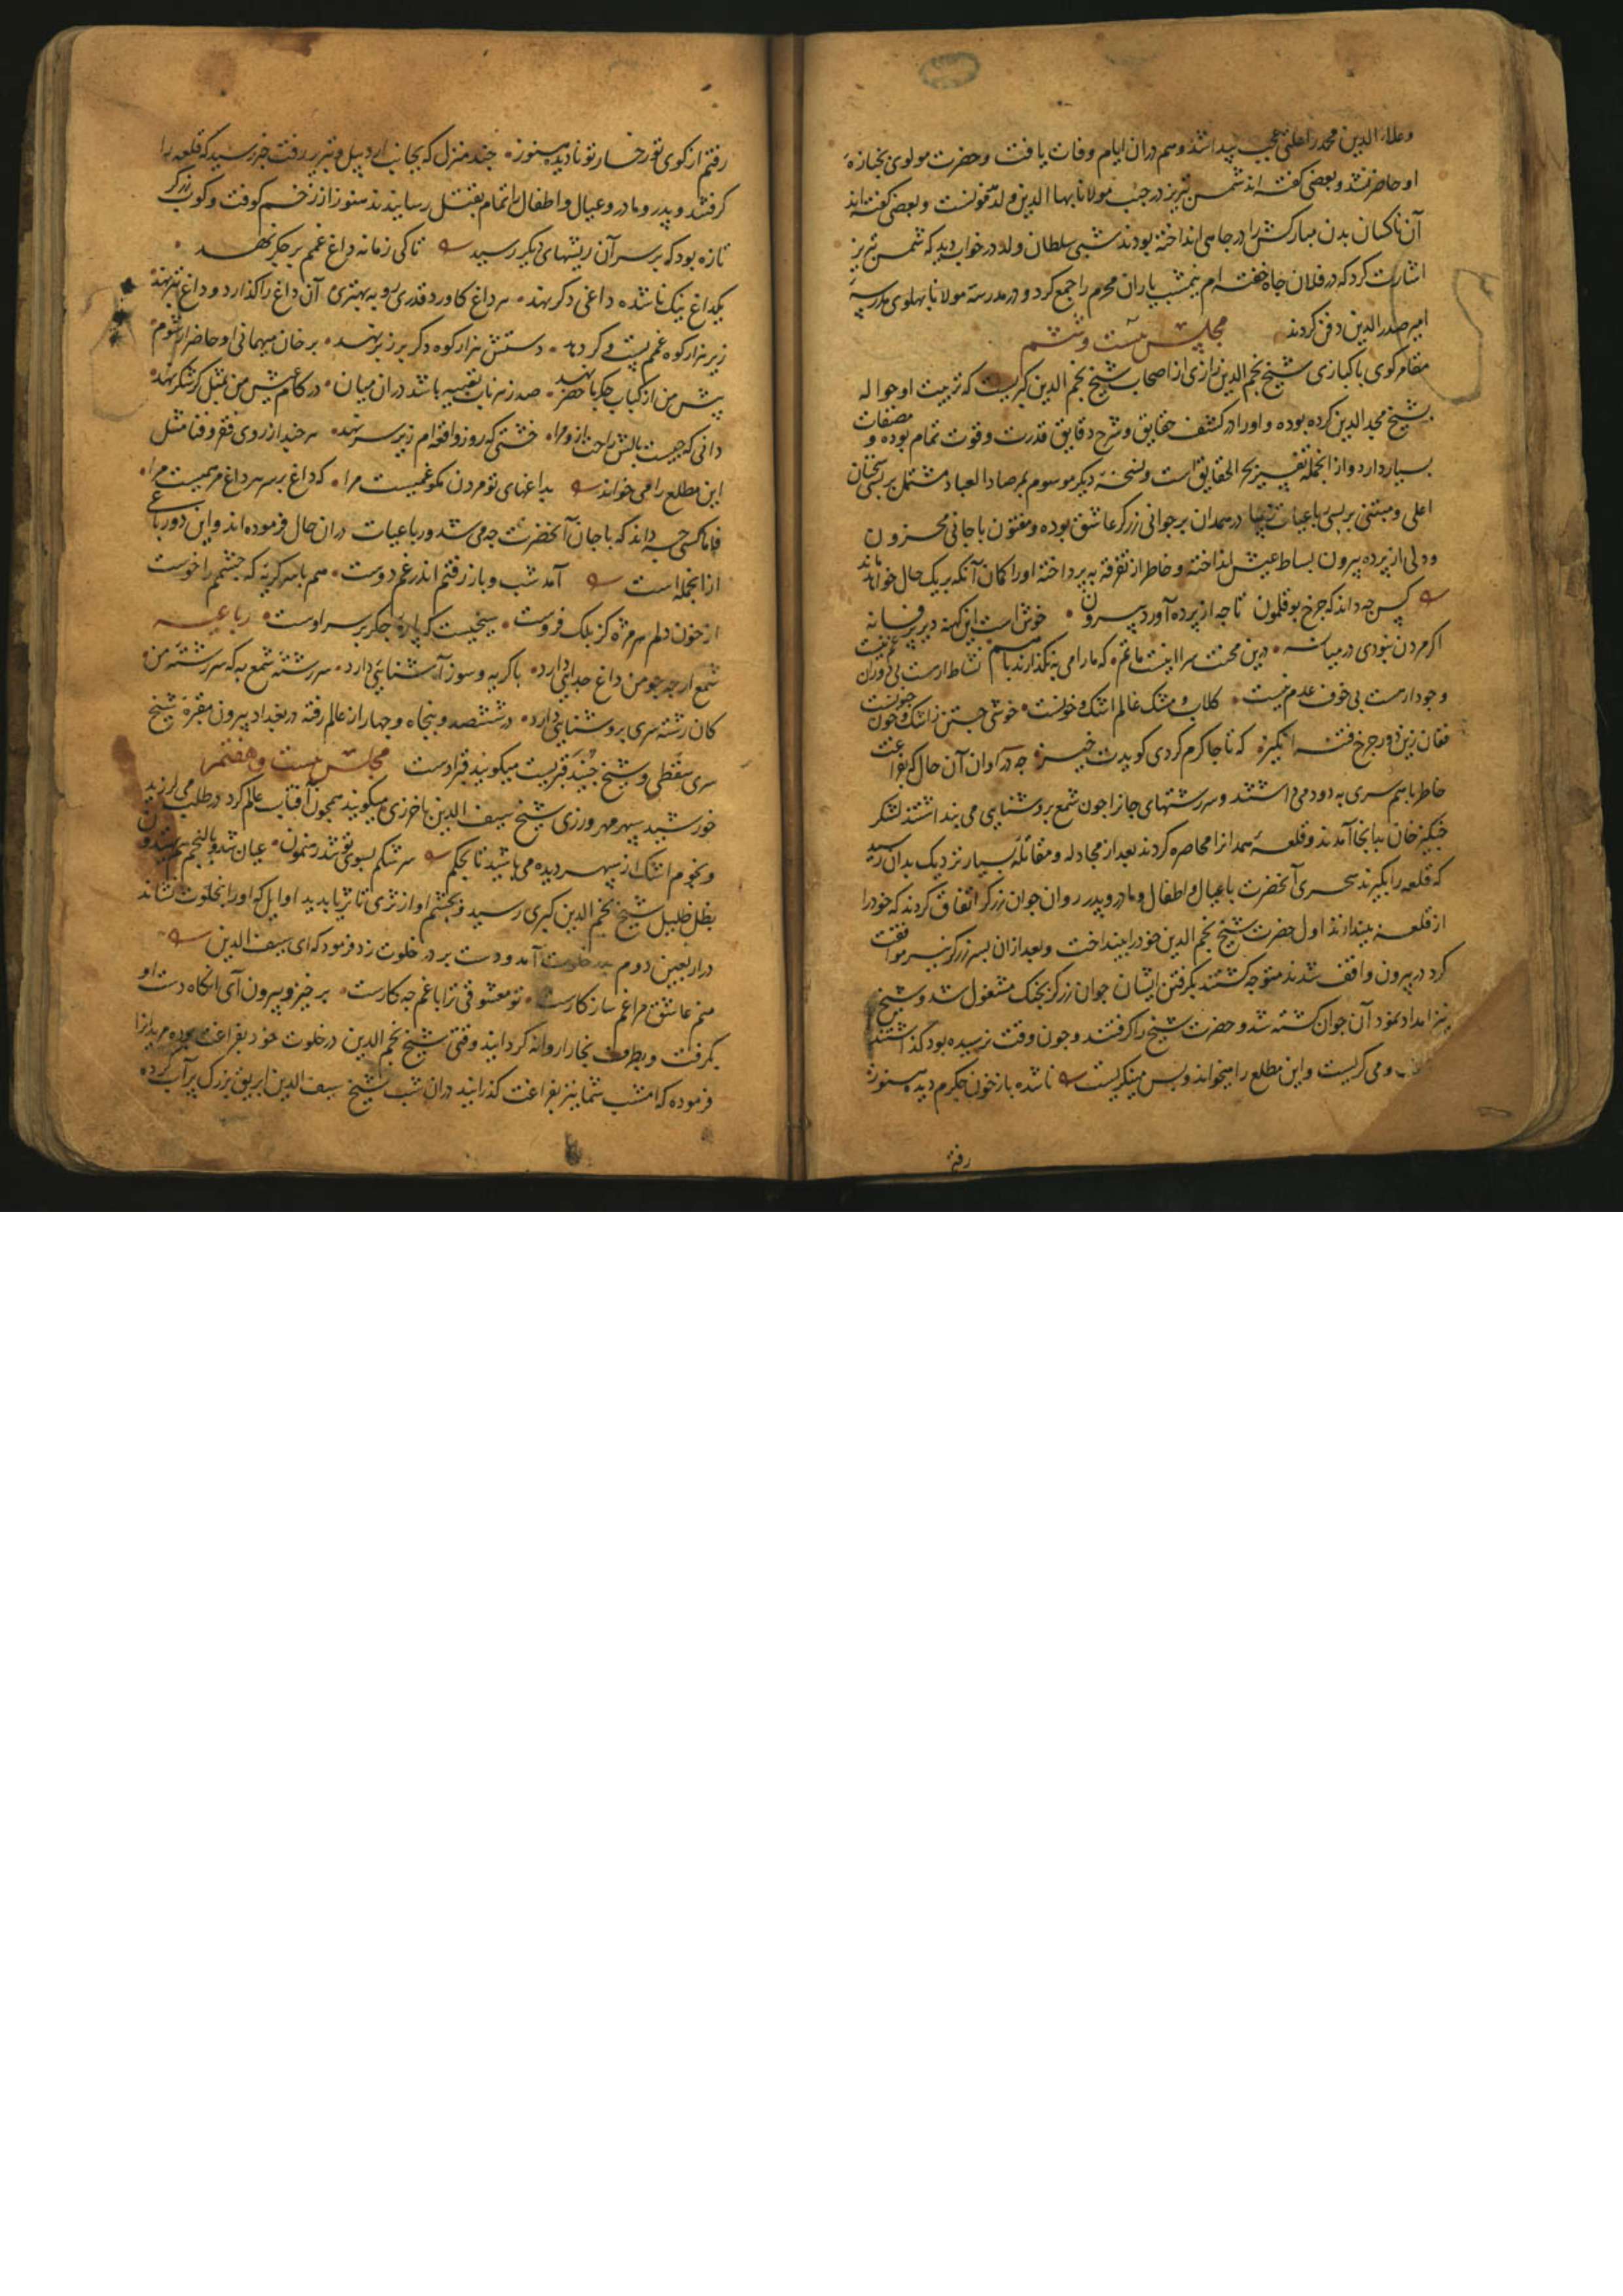 وعلاء الدین محمد را علتی عجب پیدا شد و هم در ان ایام وفات یافت و حضرت مولوی بجنازهٔ
او حاضر نشد و بعضی کفته اند شمس تبریز در جنب مولانا بهاا لدین ولد مدفونست و بعضی کفته اند
آن ناکسان بدن مبارکش را در چاهی انداخته بودند شبی سلطان ولد در خواب دید که شمس تبریز
اشارت کرد که در فلان چاه خفته ام نیمشب یاران محرم را جمع کرد و در مدرسهٔ مولانا پهلوی مدرسه
امیر صدر الدین دفن کردند مجلس بیست و ششم
مقامر کوی پاکبازی شیخ نجم الدین رازی از اصحاب شیخ نجم الدین کبریست که تربیت او حواله
بشیخ مجد الدین کرده بوده و او را در کشف حقایق و شرح دقایق قدرت و قوت تمام بوده و مصنفات
بسیار دارد و از انجمله تفسیر بحر الحقایق است و نسخهٔ دیکر موسوم بمرصاد العباد مشتمل بر بسی سخنان
اعلی و مبتنی بر بسی رباعیات زیبا در همدان بر جوانی زرکر عاشق بوده و مفتون با جانی محزون
و دلی از پرده بیرون بساط عیش انداخته و خاطر از تفرقه بپرداخته او را کمان آنکه بر یک حال خواهد ماند
کس چه داند که چرخ بوقلمون تا چه از پرده آورد بیرون خوش است این کهنه دیر پر فسانه
اکر مردن نبودی در میانه درین محنت سرا اینست ماتم که ما را می نکذارند با هم نشاط ارست بی دوران غم نیست
وجود ارست بی خوف عدم نیست کلاب و مشک عالم اشک و خونست خوشی جستن ز اشک و خون جنونست
فغان زین دور چرخ فتنه انکیز که تا جا کرم کردی کویدت خیز چه در آوان آن حال که بفراغت
خاطر با هم سری به دو دمی داشتند و سررشتهای جانرا چون شمع بروشنایی می پنداشتند لشکر
جنکیز خان بدانجا آمدند و قلعهٔ همدانرا محاصره کردند بعد از مجادله و مقاتلهٔ بسیار نزدیک بدان رسید
که قلعه را بکیرند سحری آنحضرت با عیال و اطفال و مادر و پدر و آن جوان زرکر اتفاق کردند که خود را
از قلعه بیندازند اول حضرت شیخ نجم الدین خود را بینداخت و بعد از ان پسر زرکر نیز موافقت
کرد در بیرون واقف شدند متوجه کشتند بکرفتن ایشان جوان زرکر بجنک مشغول شد و شیخ
نیز امداد نمود آن جوان کشته شد و حضرت شیخ را کرفتند و چون وقت نرسیده بود کذاشتند
و می کریست و این مطلع را میخواند و پس مینکریست ناشده باز خون جکرم دیده هنوز
رفتم
رفتم از کوی تو رخسار تو نادیده هنوز چند منزل که بجانب اردبیل و تبریز رفت خبر رسید که قلعه را
کرفتند و پدر و مادر و عیال و اطفال را تمام بقتل رسانیدند هنوز از زخم کوفت و کوب زرکر
تازه بود که بر سر آن ریشهای دیکر رسید تا کی زمانه داغ غمم بر جکر نهد
یکداغ نیک ناشده داغی دکر نهد هر داغ کاورد قدری رو به بهتری آن داغ را کذارد و داغ بتر نهد
زیر هزار کوه غمم پست می کردد دستش هزار کوه دکر بر زبر نهد بر خان میهمانی او حاضر ار شوم
پیش من از کباب جکر ما حضر نهد صد زهر ناب تعبیه باشد در ان میان در کام عیش من بمثل کر شکر نهد
دانی که چیست بالش راحت از و مرا خشتی که روز واقعه ام زیر سر نهد هر چند از روی فقر و فنا مثل
این مطلع را می خواند بداغهای تو مردن نکو غمیست مرا که داغ بر سر هر داغ مرهمیست مرا
فاما کسی چه داند که با جان آنحضرت چه می شد و رباعیات در ان حال فرموده اند و این دو رباعی
از انجمله است آمد شب و باز رفتم اندر غم دوست هم با سر کریه که چشمم را خوست
از خون دلم هر مژه کز پلک فروست سیخیست که پارهٔ جکر بر سر اوست رباعیه
شمع ارچه چو من داغ جدایی دارد با کریه و سوز آشنایی دارد سررشتهٔ شمع به که سررشتهٔ من
کان رشته سری بروشنایی دارد در ششصد و پنجاه و چهار از عالم رفته در بغداد بیرون مقبرهٔ شیخ
سری سقطی و شیخ جنید قبریست میکویند قبر اوست مجلس بیست و هفتم
خورشید سپهر مهرورزی شیخ سیف الدین باخرزی میکویند همچون آفتاب عالم کرد در طلب می لرزید
و نجوم اشک از سپهر دیده می پاشید تا بحکم سر شکم بسوی تو شد رهنمون عیان شد و بالنجم هم یهتدون
بظل ظلیل شیخ نجم الدین کبری رسید و بچشم او از ثری تا ثریا بدید اوایل که او را بخلوت نشاند
در اربعین دوم بدر خلوت آمد و دست بر در خلوت زد فرمود که ای سیف الدین
منم عاشق مرا غم ساز کارست تو معشوقی ترا با غم چه کارست بر خیز و بیرون آی انکاه دست او
بکرفت و بطرف بخارا روانه کردانید وقتی شیخ نجم الدین در خلوت خود بفراغت بوده مریدانرا
فرموده که امشب شما نیز بفراغت کذرانید در ان شب شیخ سیف الدین ابریق بزرک پر آب کرده